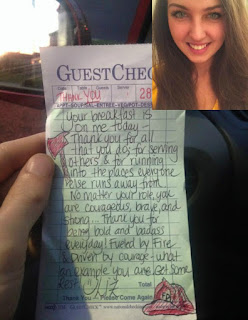 GUESTCHECK
Date Table Guests Server
THANK YOU 28
APPT-SOUP/SAL-ENTREE-VEG/POT-DES
Your breakfast is
on me today -
Thank you for all
that you do; for serving
others & for running
into the places everyone
else runs away from.
No matter your role, you
are courageous, brave, and
strong... Thank you for
being bold and badass
everyday! Fueled by Fire
& Driven by courage - what
an example you are. Get some
rest. Liz
Tax
Total
Thank You - Please Come Again